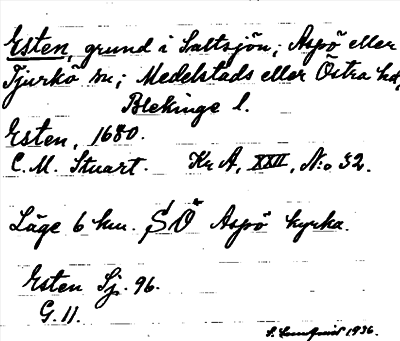 Esten, grund i Saltsjön; Aspö eller
Tjurkö sn; Medelstads eller Östra hd,
Blekinge l.
Esten, 1680.
C. M. Stuart. Kr A, XXII, N:o 32.
Läge 6 km. SÖ Aspö kyrka.
Esten Sj. 96.
G. 11.
S. Lundqvist 1936.